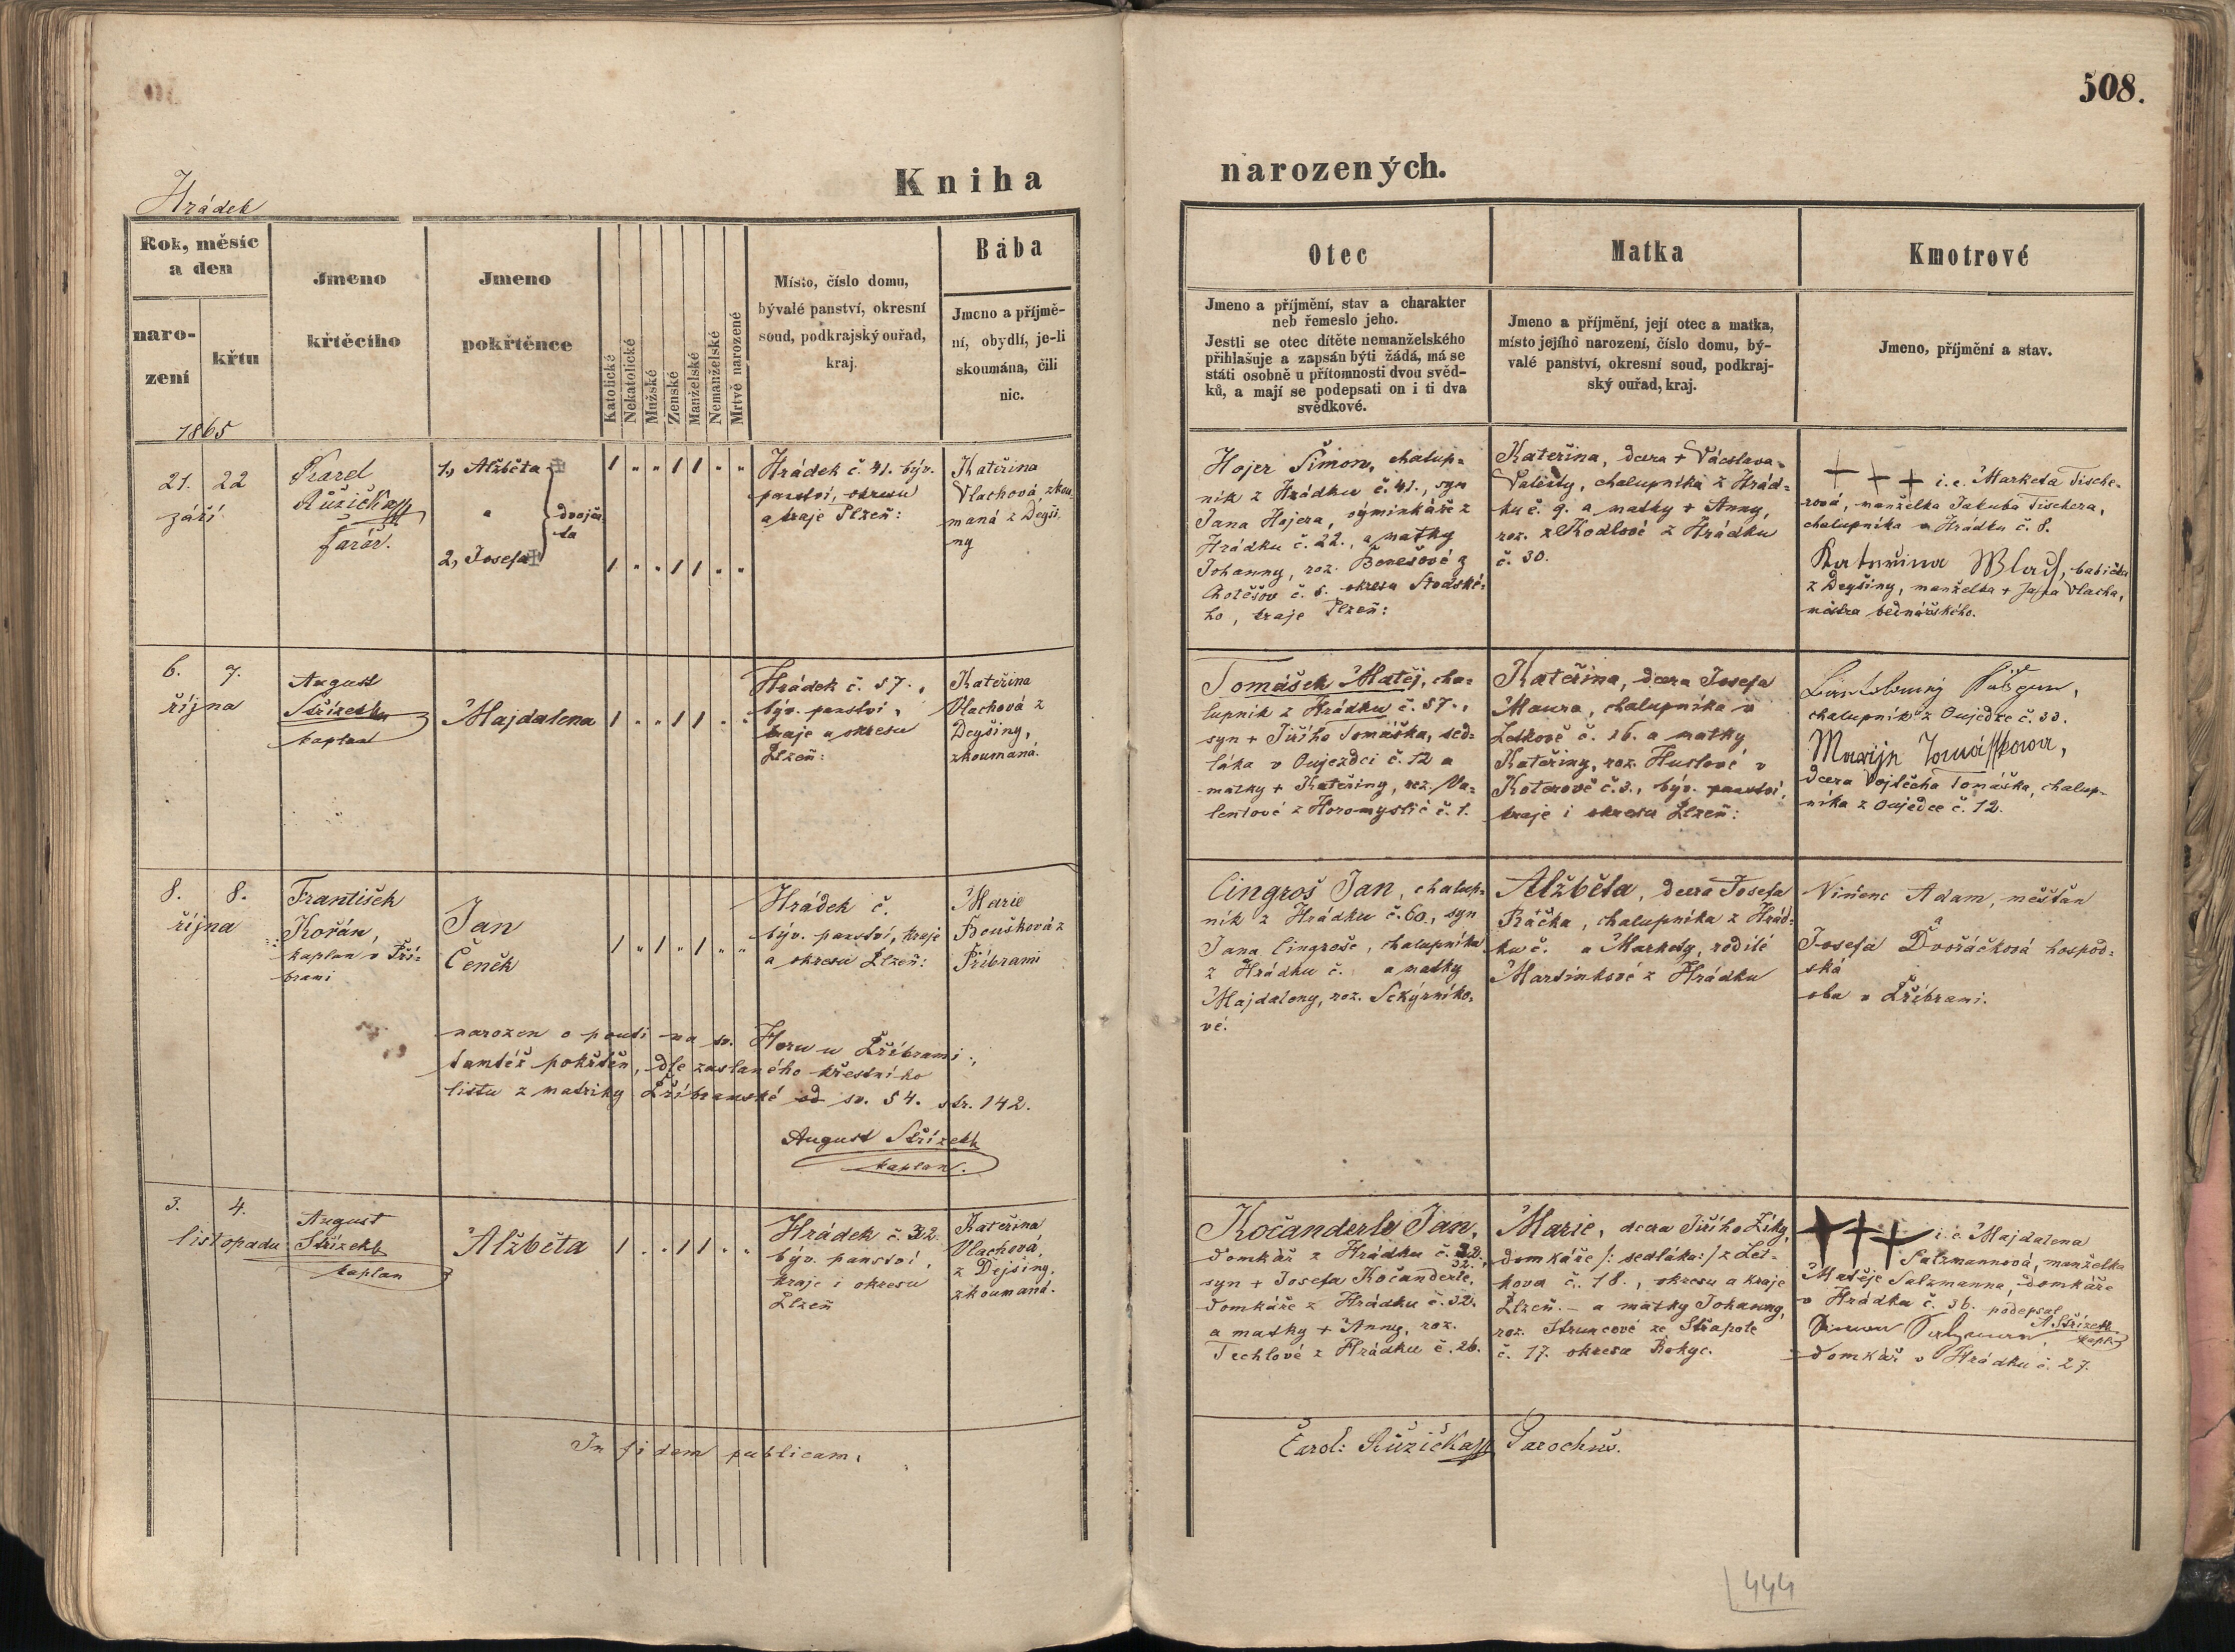 508.
Kniha narozených.
Hrádek
Rok, měsíc
a den
naro-
zení
křtu
1865
Jmeno
křtěcího
Jmeno
pokřtěnce
Katolické
Nekatolické
Mužské
Zenské
Manželské
Nemanželské
Mrtvě narozené
Místo, číslo domu,
bývalé panství, okresní
soud, podkrajský ouřad,
kraj.
Bába
Jmeno a příjmě-
ní, obydlí, je-li
skoumána, čili
nic.
Otec
Jmeno a příjmění, stav a charakter
neb řemeslo jeho.
Jestli se otec dítěte nemanželského
přihlašuje a zapsán býti žádá, má se
státi osobně u přítomnosti dvou svěd-
ků, a mají se podepsati on i ti dva
svědkové.
Matka
Jmeno a příjmění, její otec a matka,
místo jejího narození, číslo domu, bý-
valé panství, okresní soud, podkraj-
ský ouřad, kraj.
Kmotrové
Jmeno, příjmění a stav.
21. 22
září
Karel
Růžička
farář.
1, Alžběta
a
dvojča
ta
2, Josefa
Hrádek č. 41. býv.
panství, okresu
a kraje Plzeň:
Kateřina
Vlachová, zkou
maná z Dejši
ny
Hojer Šimon, chalup=
ník z Hrádku č. 41., syn
Jana Hojera, výminkáře z
Hrádku č. 22., a matky
Johanny, roz. Benešové z
Chotěšov č. 6. okresu Stodské-
ho, kraje Plzeň:
Kateřina, dcera + Václava
Valenty, chalupníka z Hrád=
ku č. 9. a matky + Anny,
roz. z Kodlové z Hrádku
č. 30.
+ + + i. e. Marketa Tische-
rová, manželka Jakuba Tischera,
chalupníka v Hrádku č. 8.
Kateřina Wlach, babička
z Dejšiny, manželka + Jana Vlacha,
mistra bednářského.
6. 7.
října
August
Střízek
kaplan
Majdalena
Hrádek č. 57.,
býv. panství,
kraje a okresu
Plzeň:
Kateřina
Vlachová z
Dejšiny,
zkoumaná.
Tomášek Matěj, cha-
lupník z Hrádku č. 57.,
syn + Jiřího Tomáška, sed-
láka v Oujezdci č. 12 a
matky + Kateřiny, roz. Va-
lentové z Horomyslic č. 1.
Kateřina, dcera Josefa
Maura, chalupníka v
Letkově č. 16. a matky
Kateřiny, roz. Huslové v
Koterově č. 3., býv. panství,
kraje i okresu Plzeň:
chalupník z Oujezdce č. 33.
Marija Tomásskowa,
dcera Vojtěcha Tomáška, chalup-
níka z Oujezdce č. 12.
8. 8.
října
František
Kořán,
kaplan v Pří-
brami
Jan
Čeněk
Hrádek č.
býv. panství, kraje
a okresu Plzeň:
Marie
Boušková z
Příbrami
Cingroš Jan, chalup=
ník z Hrádku č. 60., syn
Jana Cingroše, chalupníka
z Hrádku č. a matky
Majdaleny, roz. Sekýrniko-
vé.
Alžběta, dcera Josefa
Ráčka, chalupníka z Hrád-
ku č. a Markety, rodilé
Martinkové z Hrádku
Vincenc Adam, měšťan
a
Josefa Dvořáčková hospod-
ská
oba v Příbrami.
narozen o pouti na sv. Horu u Příbrami;
tamtéž pokřtěn, dle zaslaného křestního
listu z matriky Příbramské od sv. 54. str. 142.
August Střízek
kaplan.
3. 4.
listopadu
August
Střízek
kaplan
Alžběta
Hrádek č. 32.
býv. panství,
kraje i okresu
Plzeň
Kateřina
Vlachová,
z Dejšiny,
zkoumaná.
Kočanderle Jan,
domkář z Hrádku č. 32.
32.
syn + Josefa Kočanderle,
domkáře z Hrádku č. 32.
a matky + Anny, roz.
Techlové z Hrádku č. 26.
Marie, dcera Jiřího Ziky,
domkáře /: sedláka :/ z Let-
kova č. 18., okresu a kraje
Plzeň. - a matky Johanny,
roz. Struncové ze Střapole
č. 17. okresu Rokyc.
+++ i. e. Majdalena
Salzmannová, manželka
Matěje Salzmanna, domkáře
v Hrádku č. 36. podepsal
A. Střízek
kapl.
domkář v Hrádku č. 27.
In fidem publicam.
Carol: Růžička Parochus.
444